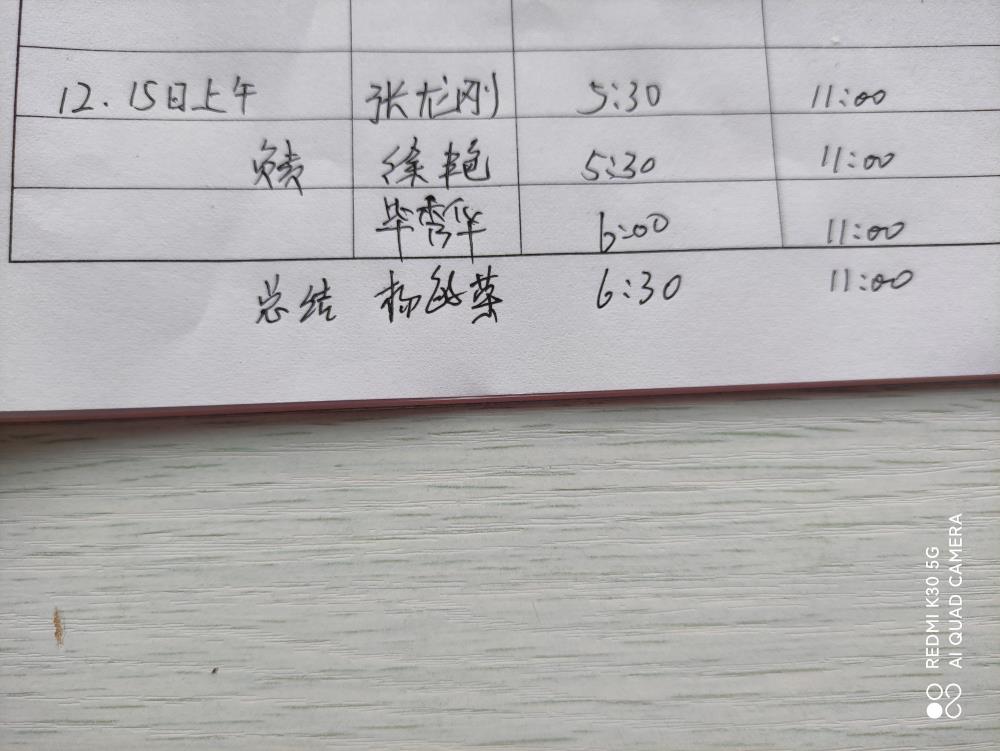 12.15日上午 张龙刚 5:30 11:00
负责 徐艳 5:30 11:00
毕秀华 6:00 11:00
总结 杨 荣 6:30 11:00
REDMI K30 5G
AI QUAD CAMERA